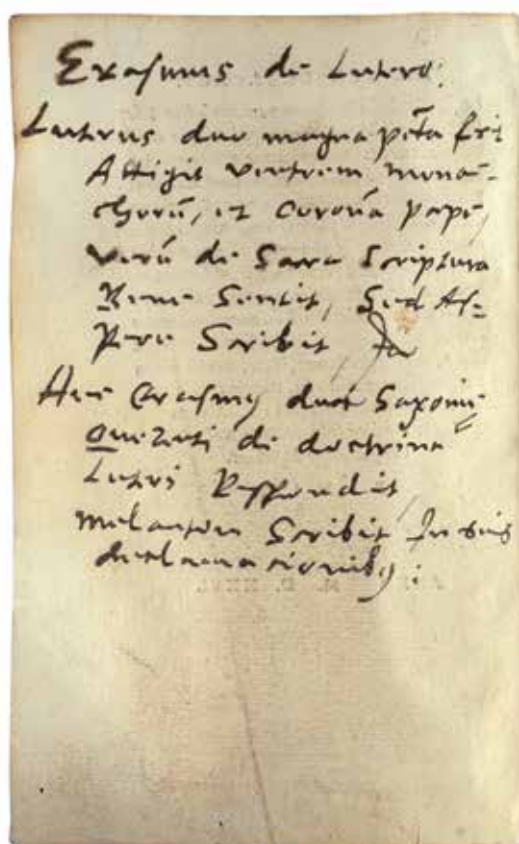 Erasmus de Lutero:
Luterus duo magna pctã
Attigit ventrem mona-
chorũ, et Coronã pape,
verũ de Sacra Scriptura
Bene Sentit, Sed As-
pere Scribit,
Hec Erasmus duci Saxonie
Querenti de doctrina
Luteri Respondit,
Melanton Scribit In suis
declamacionibus: